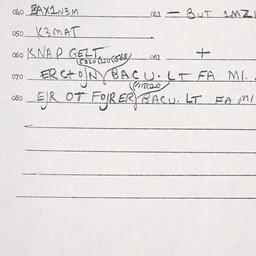 040 BAX1N3M 041 — BUT 1MZ
050 K3MAT
060 KNAP GELT 061 +
070 ERCTOJN BACU. LT FA MI.
080 EJR OT FOJRER BACU. LT FA MI